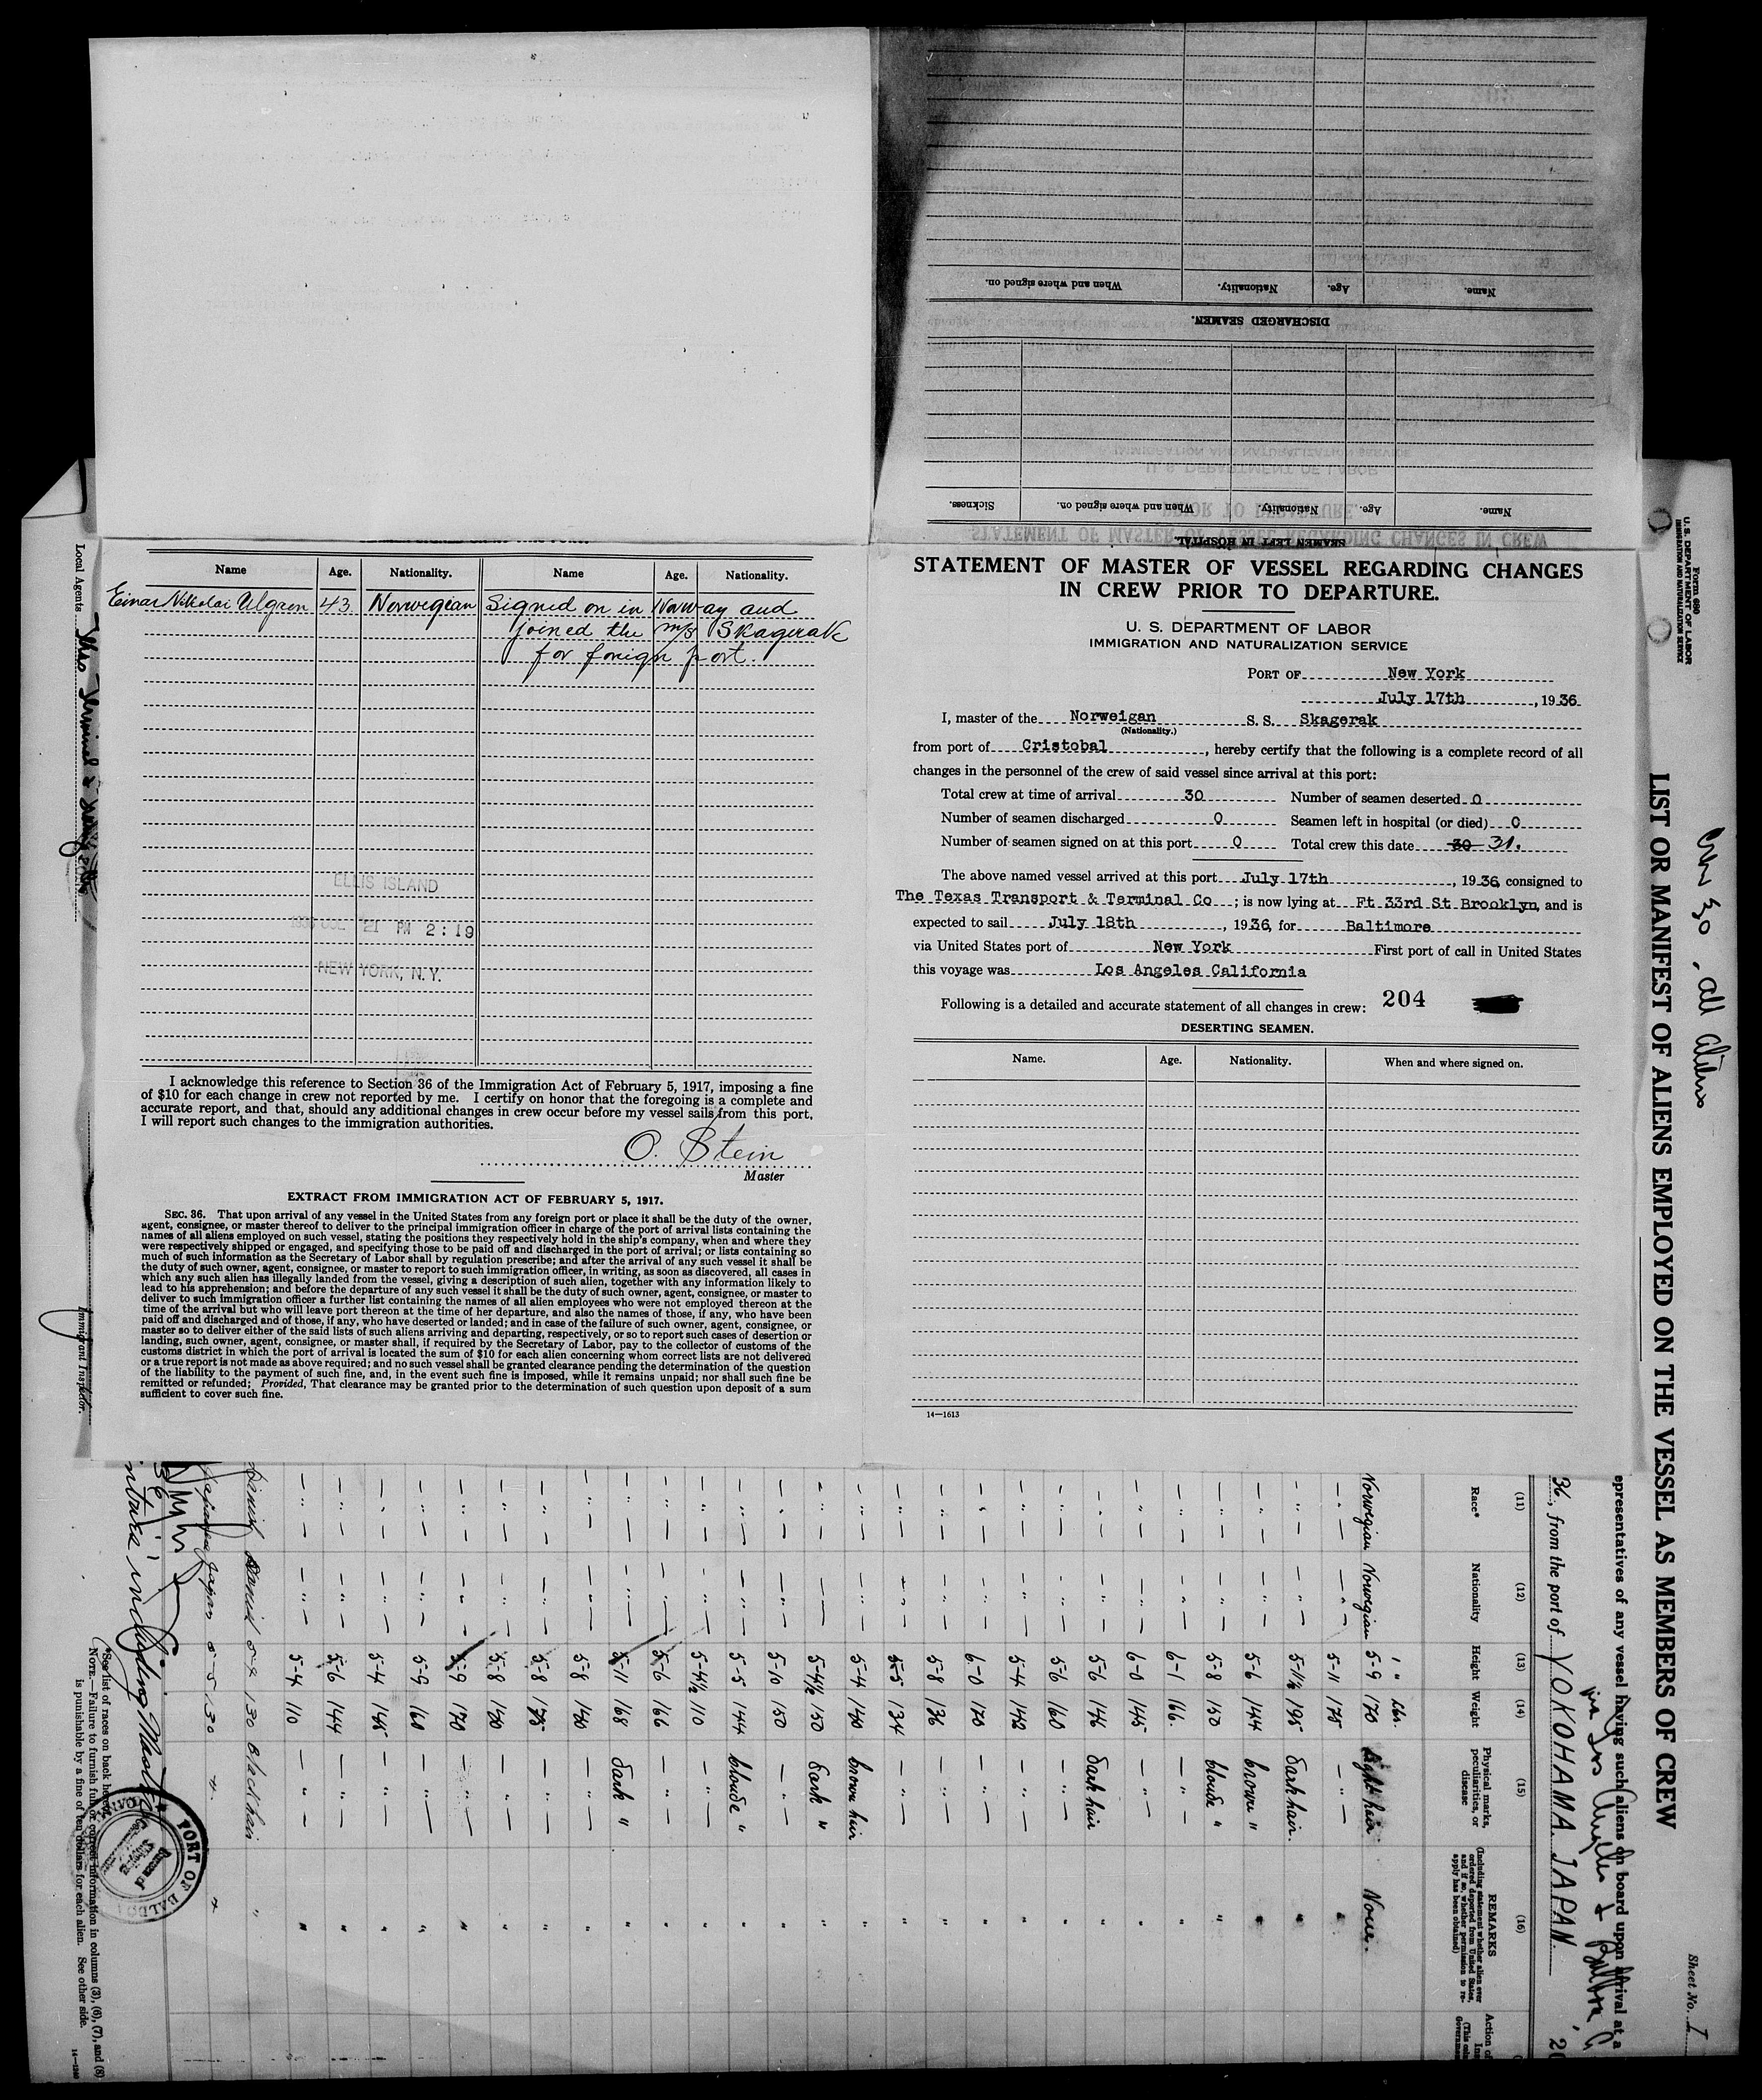 Name Age. Nationality. Name Age. Nationality.
Einar Nikolai Algren 43. Norwegian Signed on in Norway and
joined the m/s Skagerak
for foreign port.
ELLIS ISLAND
21 PM 2:19
NEW YORK, N.Y.
I acknowledge this reference to Section 36 of the Immigration Act of February 5, 1917, imposing a fine
of $10 for each change in crew not reported by me. I certify on honor that the foregoing is a complete and
accurate report, and that, should any additional changes in crew occur before my vessel sails from this port,
I will report such changes to the immigration authorities.
O. Stein
Master
EXTRACT FROM IMMIGRATION ACT OF FEBRUARY 5, 1917.
SEC. 36. That upon arrival of any vessel in the United States from any foreign port or place it shall be the duty of the owner,
agent, consignee, or master thereof to deliver to the principal immigration officer in charge of the port of arrival lists containing the
names of all aliens employed on such vessel, stating the positions they respectively hold in the ship's company, when and where they
were respectively shipped or engaged, and specifying those to be paid off and discharged in the port of arrival; or lists containing so
much of such information as the Secretary of Labor shall by regulation prescribe; and after the arrival of any such vessel it shall be
the duty of such owner, agent, consignee, or master to report to such immigration officer, in writing, as soon as discovered, all cases in
which any such alien has illegally landed from the vessel, giving a description of such alien, together with any information likely to
lead to his apprehension; and before the departure of any such vessel it shall be the duty of such owner, agent, consignee, or master to
deliver to such immigration officer a further list containing the names of all alien employees who were not employed thereon at the
time of the arrival but who will leave port thereon at the time of her departure, and also the names of those, if any, who have been
paid off and discharged and of those, if any, who have deserted or landed; and in case of the failure of such owner, agent, consignee, or
master so to deliver either of the said lists of such aliens arriving and departing, respectively, or so to report such cases of desertion or
landing, such owner, agent, consignee, or master shall, if required by the Secretary of Labor, pay to the collector of customs of the
customs district in which the port of arrival is located the sum of $10 for each alien concerning whom correct lists are not delivered
or a true report is not made as above required; and no such vessel shall be granted clearance pending the determination of the question
of the liability to the payment of such fine, and, in the event such fine is imposed, while it remains unpaid; nor shall such fine be
remitted or refunded; Provided, That clearance may be granted prior to the determination of such question upon deposit of a sum
sufficient to cover such fine.
SEAMEN LEFT IN HOSPITAL
Name. Age. Nationality. When and where signed on. Sickness.
DISCHARGED SEAMEN.
Name. Age. Nationality. When and where signed on.
STATEMENT OF MASTER OF VESSEL REGARDING CHANGES
IN CREW PRIOR TO DEPARTURE.
U. S. DEPARTMENT OF LABOR
IMMIGRATION AND NATURALIZATION SERVICE
PORT OF New York
July 17th, 1936
I, master of the Norweigan S.S. Skagerak
(Nationality.)
from port of Cristobal, hereby certify that the following is a complete record of all
changes in the personnel of the crew of said vessel since arrival at this port:
Total crew at time of arrival 30 Number of seamen deserted 0
Number of seamen discharged 0 Seamen left in hospital (or died) 0
Number of seamen signed on at this port 0 Total crew this date 30 31.
The above named vessel arrived at this port July 17th, 1936, consigned to
The Texas Transport & Terminal Co; is now lying at Ft 33rd St Brooklyn, and is
expected to sail July 18th, 1936, for Baltimore
via United States port of New York First port of call in United States
this voyage was Los Angeles California
Following is a detailed and accurate statement of all changes in crew: 204
DESERTING SEAMEN.
Name. Age. Nationality. When and where signed on.
14—1613
Form 680
U. S. DEPARTMENT OF LABOR
IMMIGRATION AND NATURALIZATION SERVICE
Crew 30, all aliens
LIST OR MANIFEST OF ALIENS EMPLOYED ON THE VESSEL AS MEMBERS OF CREW
Sheet No. 1
epresentatives of any vessel having such aliens on board upon arrival at a
via Los Angeles &
36, from the port of YOKOHAMA. JAPAN.
(11) (12) (13) (14) (15) (16)
Race* Nationality Height Weight Physical marks, peculiarities, or disease REMARKS (Including statement whether alien ever ordered deported from United States, and if so, whether permission to re-apply has been obtained)
Norwegian Norwegian 5-9 170 Light hair None.
— " — — " — 5-11 175 — " — "
— " — — " — 5-11½ 195 Dark hair. "
— " — — " — 5-6 144 brown " "
— " — — " — 5-8 150 blonde " "
— " — — " — 6-1 166. — " — "
— " — — " — 6-0 145 — " — "
— " — — " — 5-6 146 Dark hair "
— " — — " — 5-6 160 — " — "
— " — — " — 5-4 142 — " — "
— " — — " — 6-0 170 — " — "
— " — — " — 5-8 136 — " — "
— " — — " — 5-5 134 — " — "
— " — — " — 5-4 140 brown hair "
— " — — " — 5-4½ 150 Dark " "
— " — — " — 5-10 150 — " — "
— " — — " — 5-5 144 blonde " "
— " — — " — 5-4½ 110 — " — "
— " — — " — 5-6 166 — " — "
— " — — " — 5-11 168 Dark " "
— " — — " — 5-8 140 — " — "
— " — — " — 5-8 — " — "
— " — — " — 5-8 — " — "
— " — — " — 5-9 170 — " — "
— " — — " — 5-9 160 — " — "
— " — — " — 5-4 145 — " — "
— " — — " — 5-6 144 — " — "
— " — — " — 5-4 110 — " — "
Danish 130 Black hair "
Japan 5-5 130 " "
including Master
*See list of races on back hereof.
NOTE.—Failure to furnish full or correct information in columns (3), (6), (7), and (8)
is punishable by a fine of ten dollars for each alien. See other side.
PORT OF BALTO
Local Agents
Immigrant Inspector.